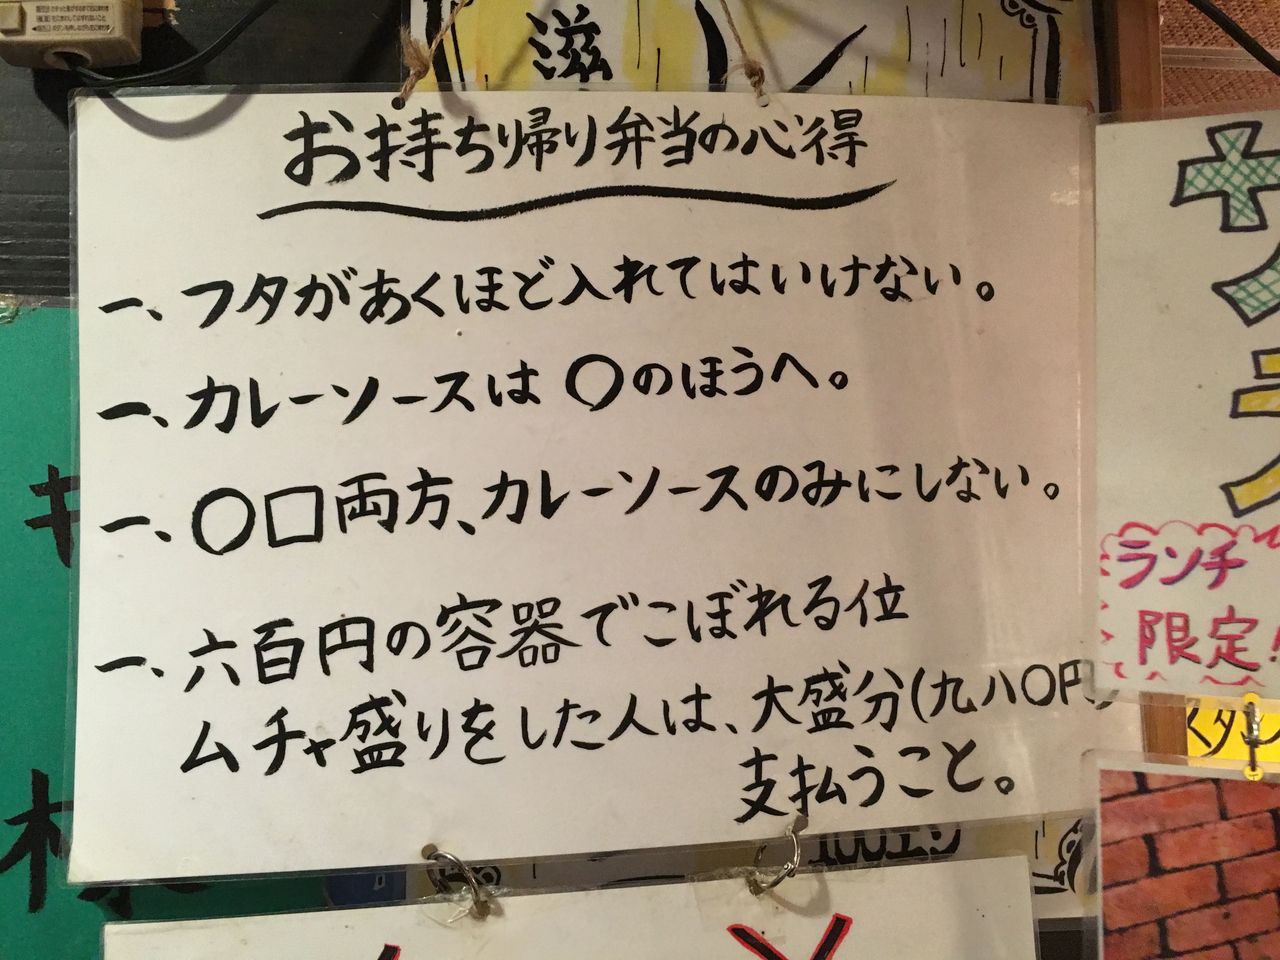 滋
お持ち帰り弁当の心得
一、フタがあくほど入れてはいけない。
一、カレーソースは〇のほうへ。
一、〇□両方、カレーソースのみにしない。
一、六百円の容器でこぼれる位
ムチャ盛りをした人は、大盛分(九八〇円)
支払うこと。
サ
ラ
ランチ
限定!